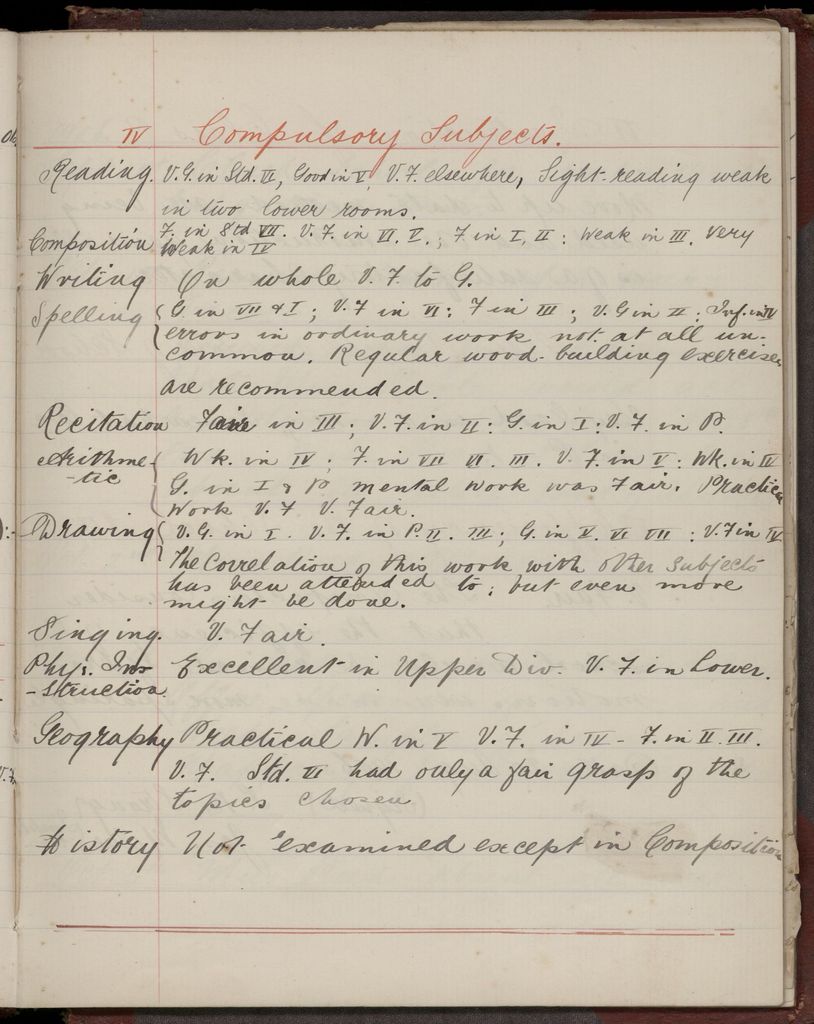 IV Compulsory Subjects.
Reading. V.G. in Std. VI, Good in V, V.F. elsewhere, Sight-reading weak
in two lower rooms.
Composition F. in Std VII. V.F. in VI. V.; F. in I, II: Weak in III. Very
Weak in IV
Writing On whole V.F. to G.
Spelling G. in VII & I; V.F in VI; F in III; V.G in II; Inf. in IV
errors in ordinary work not at all un-
common. Regular word-building exercises
are recommended.
Recitation Fair in III; V.F. in II: G. in I: V.F. in P.
Arithme- Wk. in IV; F. in VII VI. III. V.F. in V: Wk. in IV
-tic G. in I & P mental work was Fair. Practical
Work V.F V. Fair.
Drawing V.G. in I. V.F. in P. II. III; G. in V. VI VII; V.F in IV
The Correlation of this work with other subjects
has been attended to; but even more
might be done.
Singing. V. Fair.
Phys. Ins- Excellent in Upper Div. V.F. in Lower.
-struction
Geography Practical W. in V V.F. in IV - F. in II. III.
V.F. Std. VI had only a fair grasp of the
topics chosen
History Not examined except in Composition